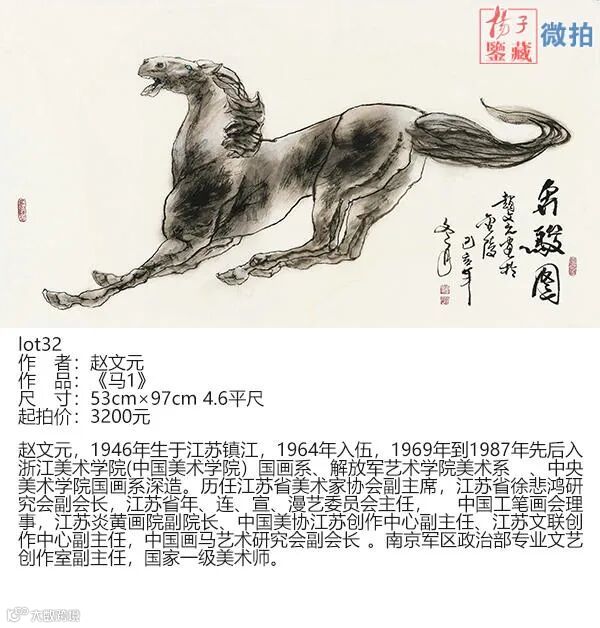 扬子
鉴藏
微拍
奔骏图
赵文元画于
金陵
己亥年
冬月
lot32
作 者：赵文元
作 品：《马1》
尺 寸：53cm×97cm 4.6平尺
起拍价：3200元
赵文元，1946年生于江苏镇江，1964年入伍，1969年到1987年先后入
浙江美术学院(中国美术学院）国画系、解放军艺术学院美术系 、中央
美术学院国画系深造。历任江苏省美术家协会副主席，江苏省徐悲鸿研
究会副会长，江苏省年、连、宣、漫艺委员会主任， 中国工笔画会理
事，江苏炎黄画院副院长、中国美协江苏创作中心副主任、江苏文联创
作中心副主任，中国画马艺术研究会副会长 。南京军区政治部专业文艺
创作室副主任，国家一级美术师。
大数跨境